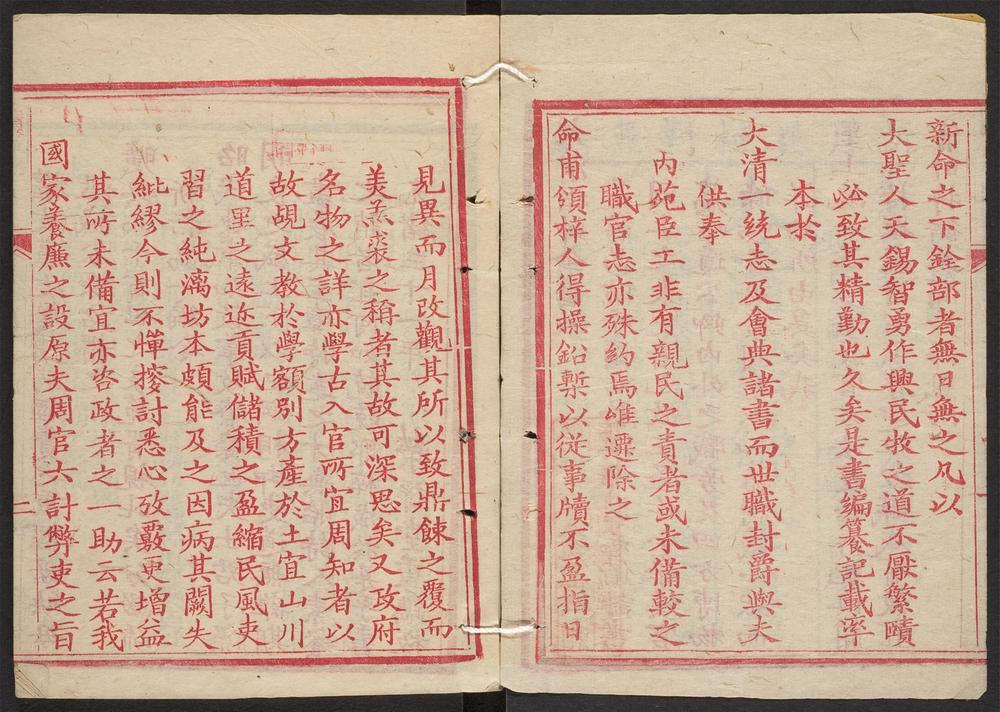 新命之下銓部者無日無之凡以
大聖人天錫智勇作興民牧之道不厭繁賾
必致其精勤也久矣是書編纂記載率
本於
大清一統志及會典諸書而世職封爵與夫
供奉
內苑臣工非有親民之責者或未備較之
職官志亦殊約焉唯遷除之
命甫頒梓人得操鉛槧以從事牘不盈指日
見異而月改觀其所以致鼎餗之覆而
美羔裘之稱者其故可深思矣又攻府
名物之詳亦學古入官所宜周知者以
故覘文教於學額別方產於土宜山川
道里之遠近貢賦儲積之盈縮民風吏
習之純漓坊本頗能及之因病其闕失
紕繆今則不憚搜討悉心攷覈更增益
其所未備宜亦咨政者之一助云若我
國家養廉之設原夫周官六計弊吏之旨
二